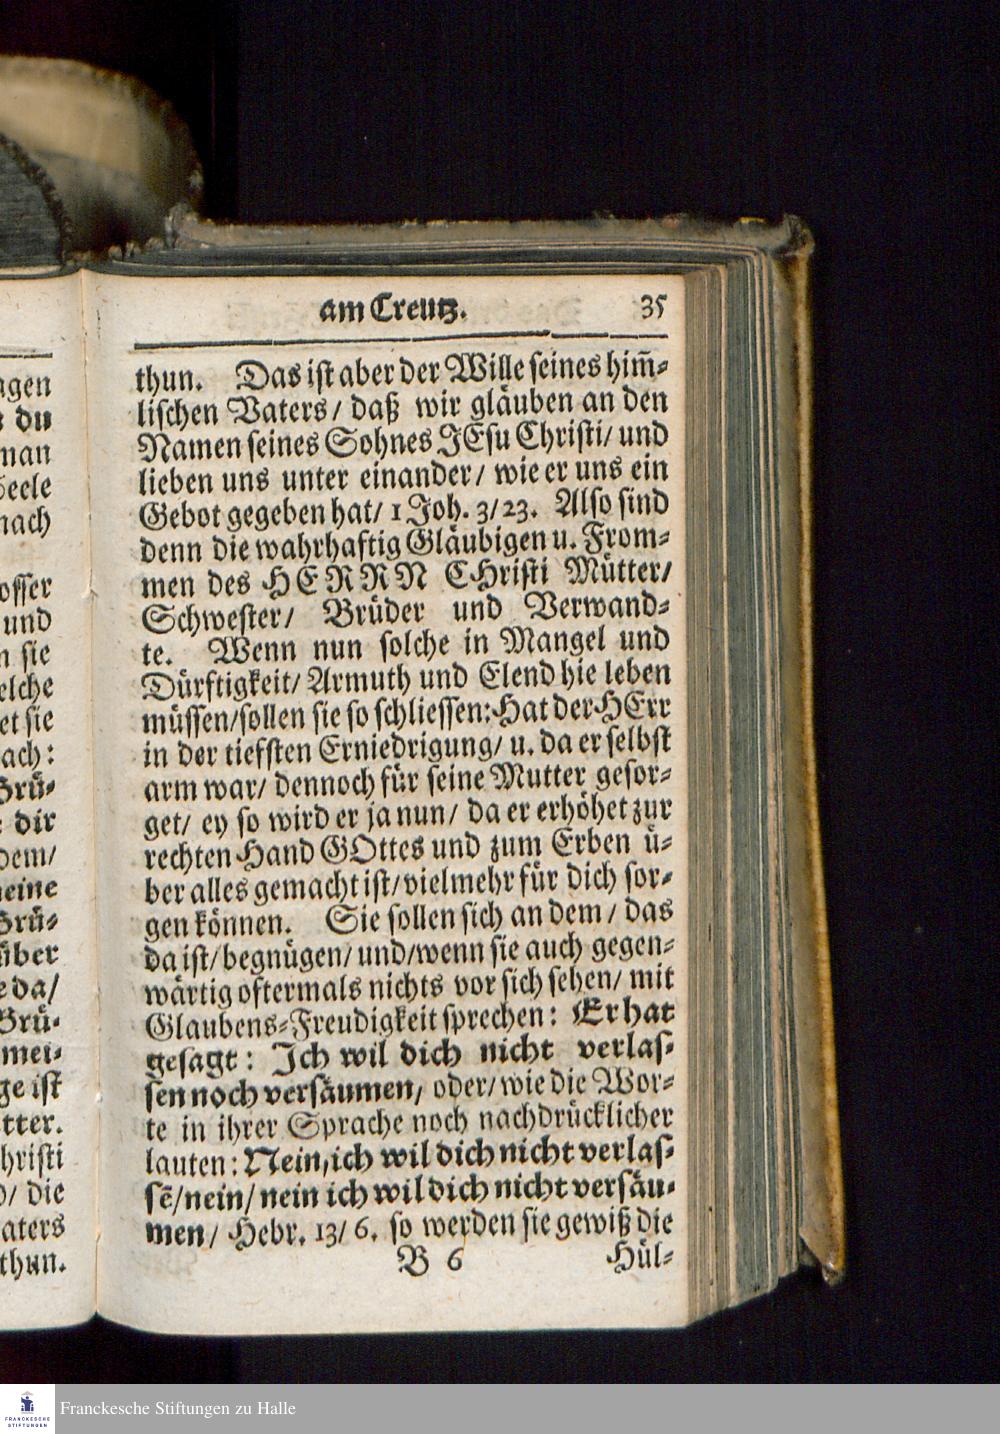 am Creutz. 35
thun. Das ist aber der Wille seines him̄-
lischen Vaters/ daß wir gläuben an den
Namen seines Sohnes JEsu Christi/ und
lieben uns unter einander/ wie er uns ein
Gebot gegeben hat/ 1 Joh. 3/23. Also sind
denn die wahrhaftig Gläubigen u. From-
men des HERRN CHristi Mütter/
Schwester/ Brüder und Verwand-
te. Wenn nun solche in Mangel und
Dürftigkeit/ Armuth und Elend hie leben
müssen/sollen sie so schliessen: Hat der HErr
in der tiefsten Erniedrigung/ u. da er selbst
arm war/ dennoch für seine Mutter gesor-
get/ ey so wird er ja nun/ da er erhöhet zur
rechten Hand GOttes und zum Erben ü-
ber alles gemacht ist/vielmehr für dich sor-
gen können. Sie sollen sich an dem/ das
da ist/ begnügen/ und/wenn sie auch gegen-
wärtig oftermals nichts vor sich sehen/ mit
Glaubens-Freudigkeit sprechen: Er hat
gesagt: Ich wil dich nicht verlas-
sen noch versäumen, oder/ wie die Wor-
te in ihrer Sprache noch nachdrücklicher
lauten: Nein, ich wil dich nicht verlas-
sē/nein/ nein ich wil dich nicht versäu-
men/ Hebr. 13/6. so werden sie gewiß die
B 6 Hül-
du
man
nach
und
sie
dir
über
da/
ist
die
thun.
FRANCKESCHE
STIFTUNGEN
Franckesche Stiftungen zu Halle